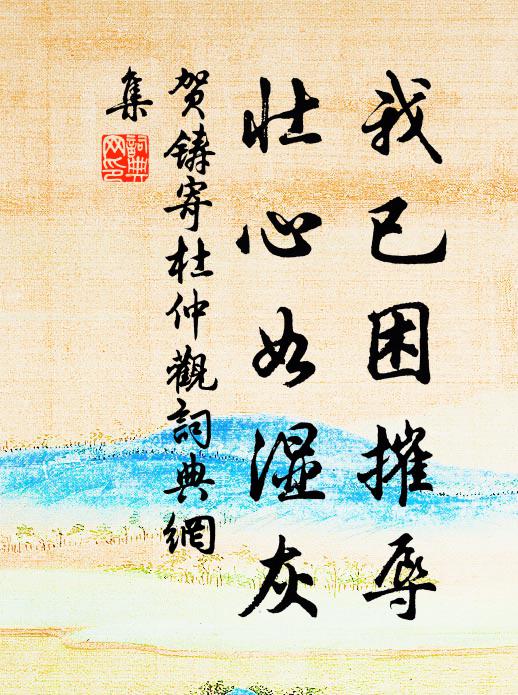 我已困摧辱
壮心如湿灰
贺铸寄杜仲觀詞典網
集
詞典网印